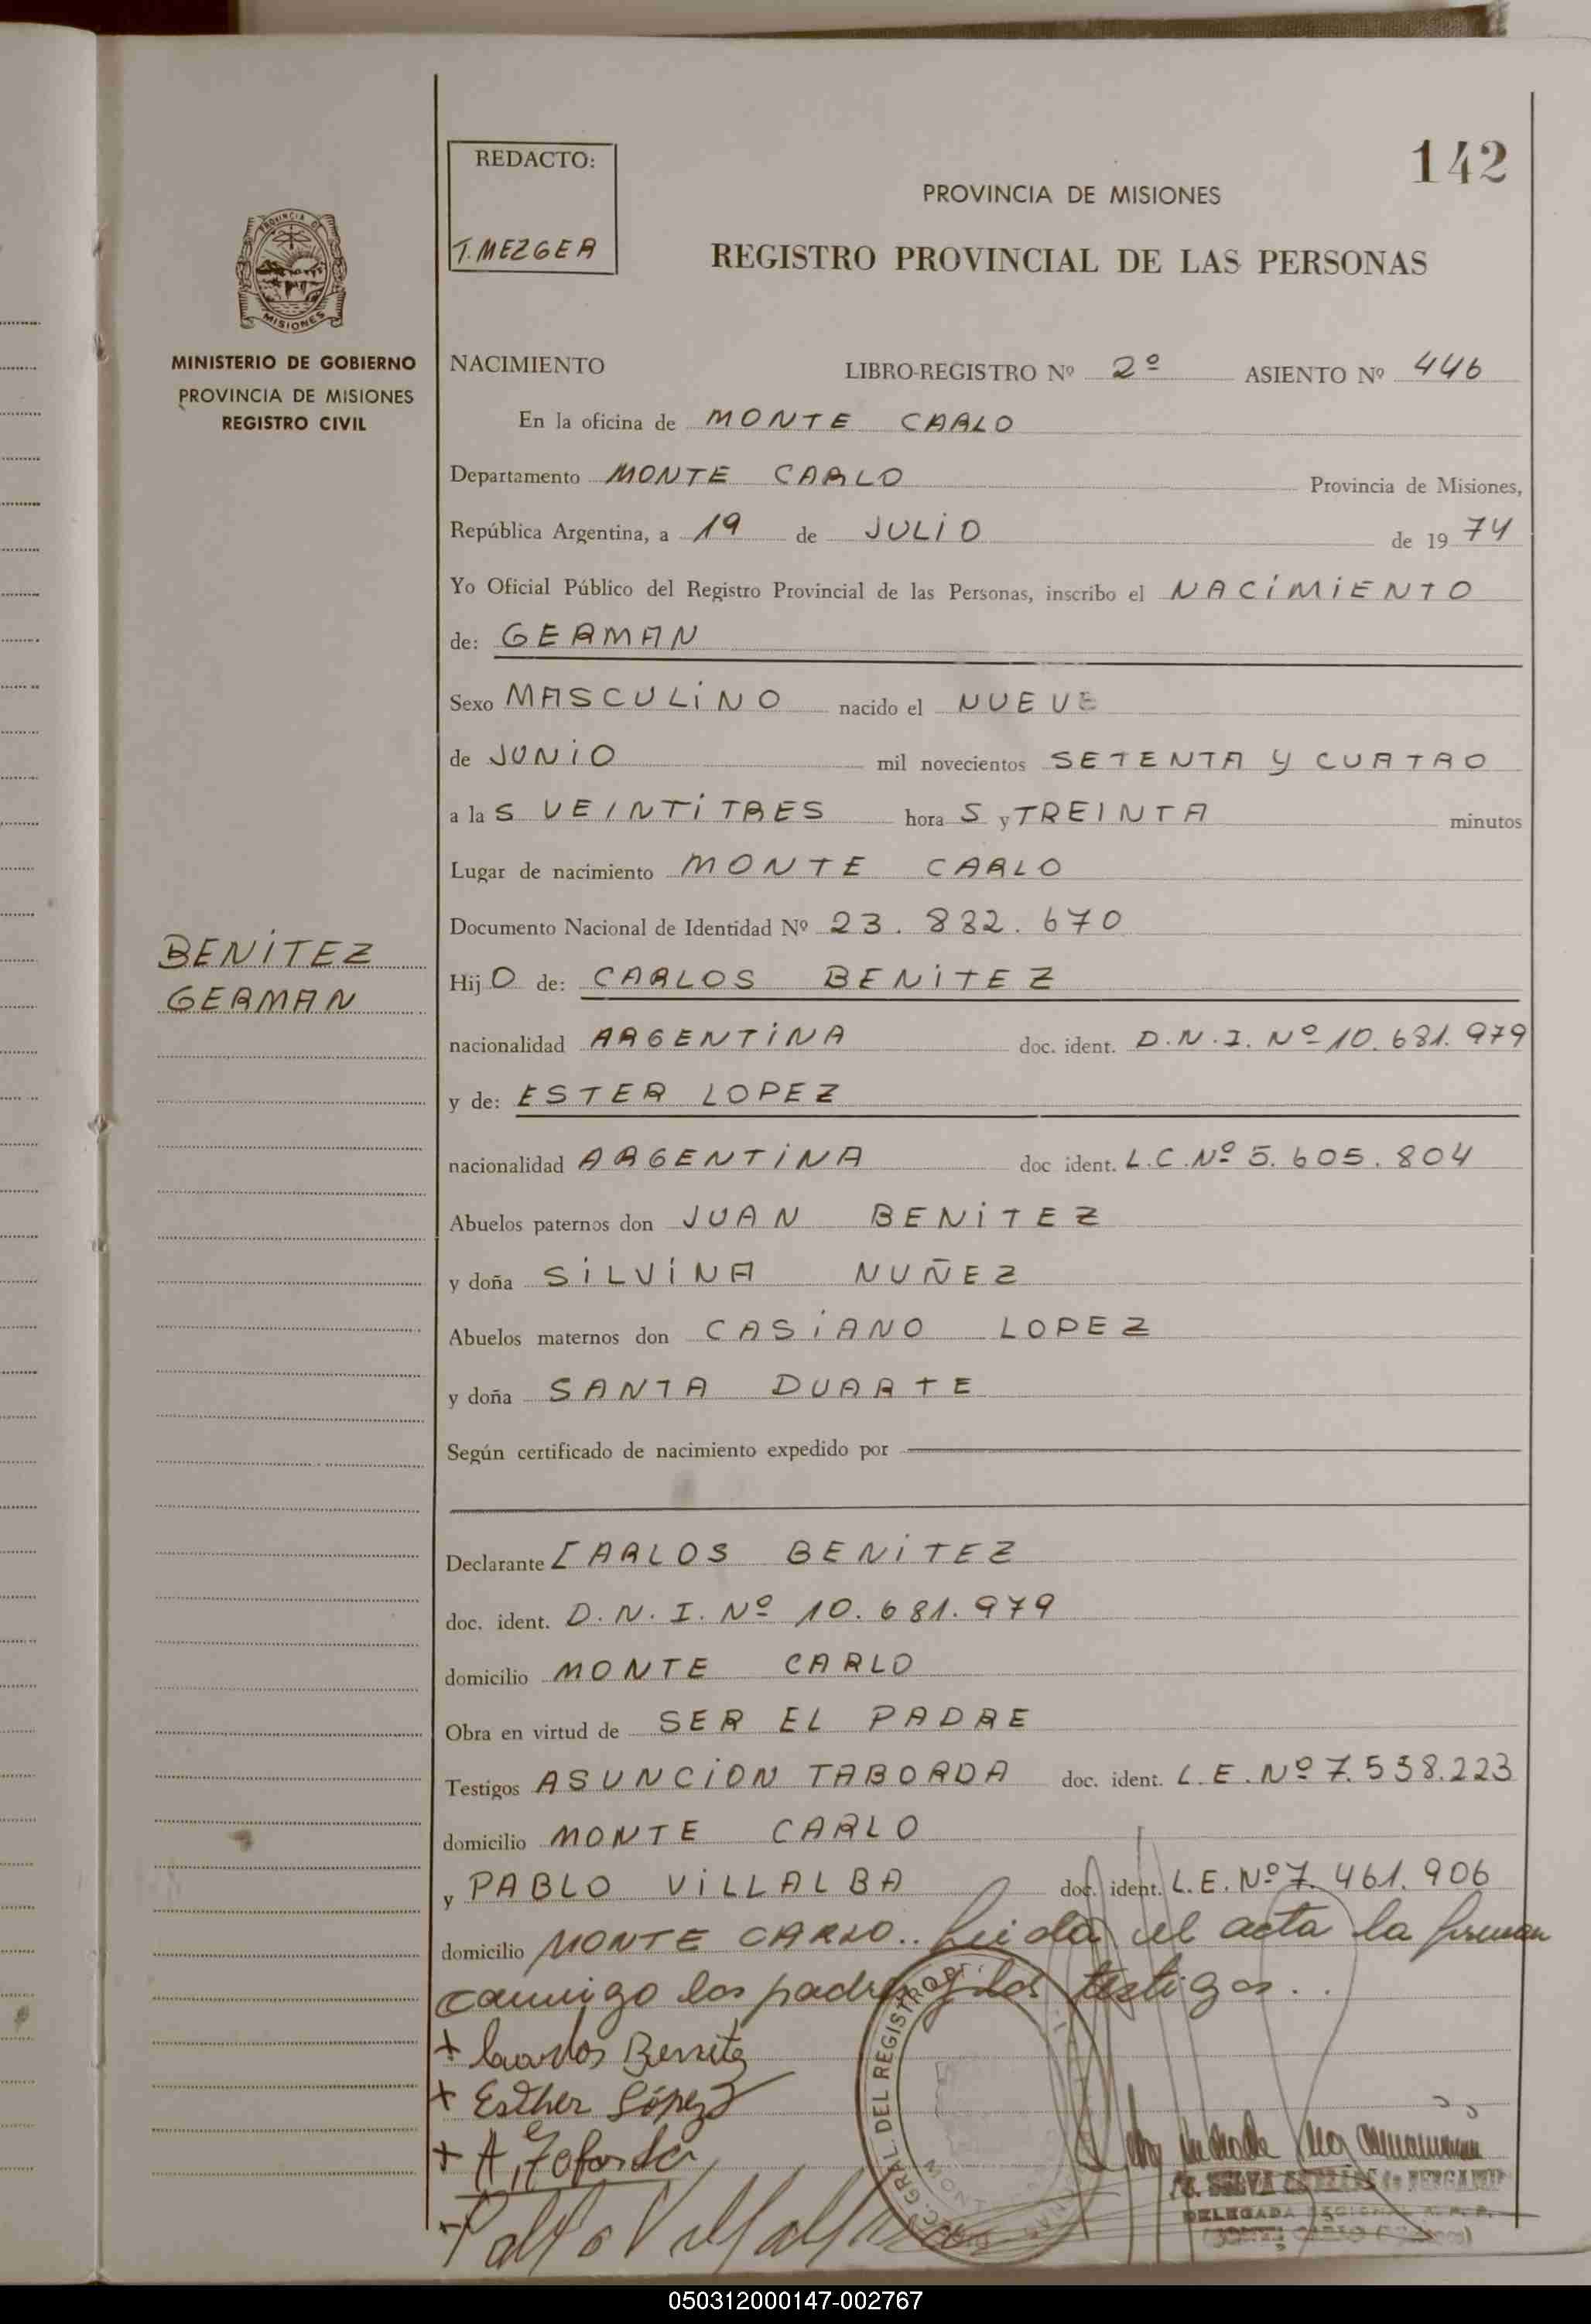 142
REDACTO:
T. MEZGER
PROVINCIA DE MISIONES
REGISTRO PROVINCIAL DE LAS PERSONAS
PROVINCIA D
MISIONES
MINISTERIO DE GOBIERNO
PROVINCIA DE MISIONES
REGISTRO CIVIL
NACIMIENTO LIBRO-REGISTRO Nº 2º ASIENTO Nº 446
En la oficina de MONTE CARLO
Departamento MONTE CARLO Provincia de Misiones,
República Argentina, a 19 de JULIO de 19 74
Yo Oficial Público del Registro Provincial de las Personas, inscribo el NACIMIENTO
de: GERMAN
Sexo MASCULINO nacido el NUEVE
de JUNIO mil novecientos SETENTA Y CUATRO
a las VEINTITRES horas y TREINTA minutos
Lugar de nacimiento MONTE CARLO
Documento Nacional de Identidad Nº 23.882.670
BENITEZ
GERMAN
Hijo de: CARLOS BENITEZ
nacionalidad ARGENTINA doc. ident. D.N.I. Nº 10.681.979
y de: ESTER LOPEZ
nacionalidad ARGENTINA doc ident. L.C. Nº 5.605.804
Abuelos paternos don JUAN BENITEZ
y doña SILVINA NUÑEZ
Abuelos maternos don CASIANO LOPEZ
y doña SANTA DUARTE
Según certificado de nacimiento expedido por
Declarante CARLOS BENITEZ
doc. ident. D.N.I. Nº 10.681.979
domicilio MONTE CARLO
Obra en virtud de SER EL PADRE
Testigos ASUNCION TABORDA doc. ident. L.E. Nº 7.538.223
domicilio MONTE CARLO
y PABLO VILLALBA doc. ident. L.E. Nº 7.461.906
domicilio MONTE CARLO.. Leida el acta la firman
conmigo los padres y los testigos..
+ Carlos Benitez
+ Esther López
+ A, Taborda
Pablo Villalba
GRAL. DEL REGISTRO
DELEGADA
050312000147-002767